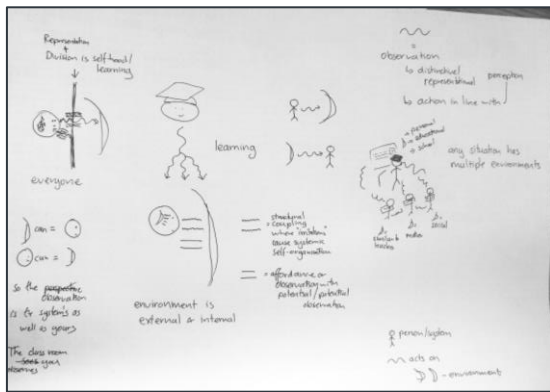 Representation
+
Division is self-hood/
learning
everyone
can =
can =
so the perspective
observation
is the system's as
well as yours
The classroom
sees you
observes
learning
environment is
external or internal
structural
coupling
where irritations
cause systemic
self-organisation
= affordance or
observation with
potential/potential
observation
=
observation
↳ distinctive/
representational
perception
↳ action in line with
→ personal
→ educational
→ school
any situation has
multiple environments
student
teacher
peer
social
person/system
acts on
- environment